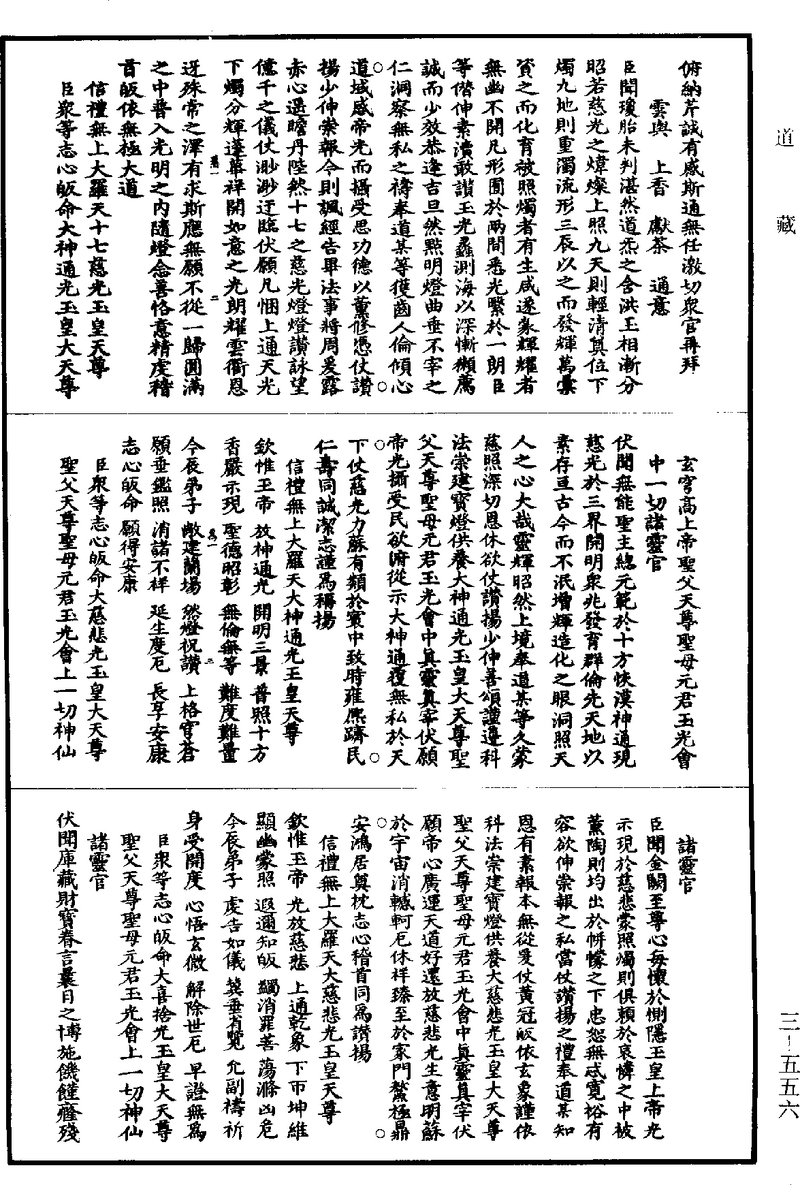 道藏
俯納芹誠有感斯通無任激切衆官再拜
雲輿 上香 獻茶 通意
臣聞瓊胎未判湛然道炁之含洪玉相漸分
昭若慈光之煒燦上照九天則輕清奠位下
燭九地則重濁流形三辰以之而發輝萬彙
資之而化育被照燭者有生咸遂蒙輝耀者
無幽不開凡形囿於兩間悉光緊於一朗臣
等僭伸素瀆敢讃玉光蠡測海以深慚獺薦
誠而少效恭逢吉旦然點明燈曲垂不宰之
仁洞察無私之禱奉道某等獲齒人倫傾心
道域感帝光而攝受思功德以薰修憑仗讃
揚少伸崇報今則諷經告畢法事將周爰露
赤心遥瞻丹陛然十七之慈光燈燈讃詠望
億千之儀仗渺渺迂臨伏願凡悃上通天光
下燭分輝蓬蓽祥開如意之光朗耀雲衢恩
迓殊常之澤有求斯應無願不從一歸圓滿
之中普入光明之内隨燈念善恪意精虔稽
首皈依無極大道
信禮無上大羅天十七慈光玉皇天尊
臣衆等志心皈命大神通光玉皇大天尊
玄穹高上帝聖父天尊聖母元君玉光會
中一切諸靈官
伏聞無能聖主總元範於十方恢漠神通現
慈光於三界開明衆兆發育群倫先天地以
素存亘古今而不泯增輝造化之眼洞照天
人之心大哉靈輝昭然上境奉道某等久蒙
慈照深切恩休欲仗讃揚少伸善頌謹遵科
法崇建寶燈供養大神通光玉皇大天尊聖
父天尊聖母元君玉光會中真靈真宰伏願
帝光攝受民欲俯從示大神通覆無私於天
下仗慈光力蘇有類於寰中致時雍熈躋民
仁壽同誠潔志謹爲稱揚
信禮無上大羅天大神通光玉皇天尊
欽惟玉帝 放神通光 開明三景 普照十方
香嚴示現 聖德昭彰 無倫無等 難度難量
今辰弟子 敞建蘭場 然燈祝讃 上格穹蒼
願垂鑑照 消諸不祥 延生度厄 長享安康
志心皈命 願得安康
臣衆等志心皈命大慈悲光玉皇大天尊
聖父天尊聖母元君玉光會上一切神仙
諸靈官
臣聞金闕至尊心每懷於惻隱玉皇上帝光
示現於慈悲蒙照燭則俱賴於哀憐之中被
薰陶則均出於帡幪之下忠恕無忒寛裕有
容欲伸崇報之私當仗讃揚之禮奉道某知
恩有素報本無從爰仗黃冠皈依玄象謹依
科法崇建寶燈供養大慈悲光玉皇大天尊
聖父天尊聖母元君玉光會中真靈真宰伏
願帝心廣運天道好還放慈悲光生意明蘇
於宇宙消轗軻厄休祥臻至於家門鰲極鼎
安鴻居奠枕志心稽首同爲讃揚
信禮無上大羅天大慈悲光玉皇天尊
欽惟玉帝 光放慈悲 上通乾象 下帀坤維
顯幽蒙照 遐邇知皈 蠲消罪菩 蕩滌凶危
今辰弟子 虔告如儀 冀垂省覽 允副禱祈
身受開度 心悟玄微 解除世厄 早證無爲
臣衆等志心皈命大喜捨光玉皇大天尊
聖父天尊聖母元君玉光會上一切神仙
諸靈官
伏聞庫藏財寶眷言曩日之博施饑饉癃殘
三-五五六